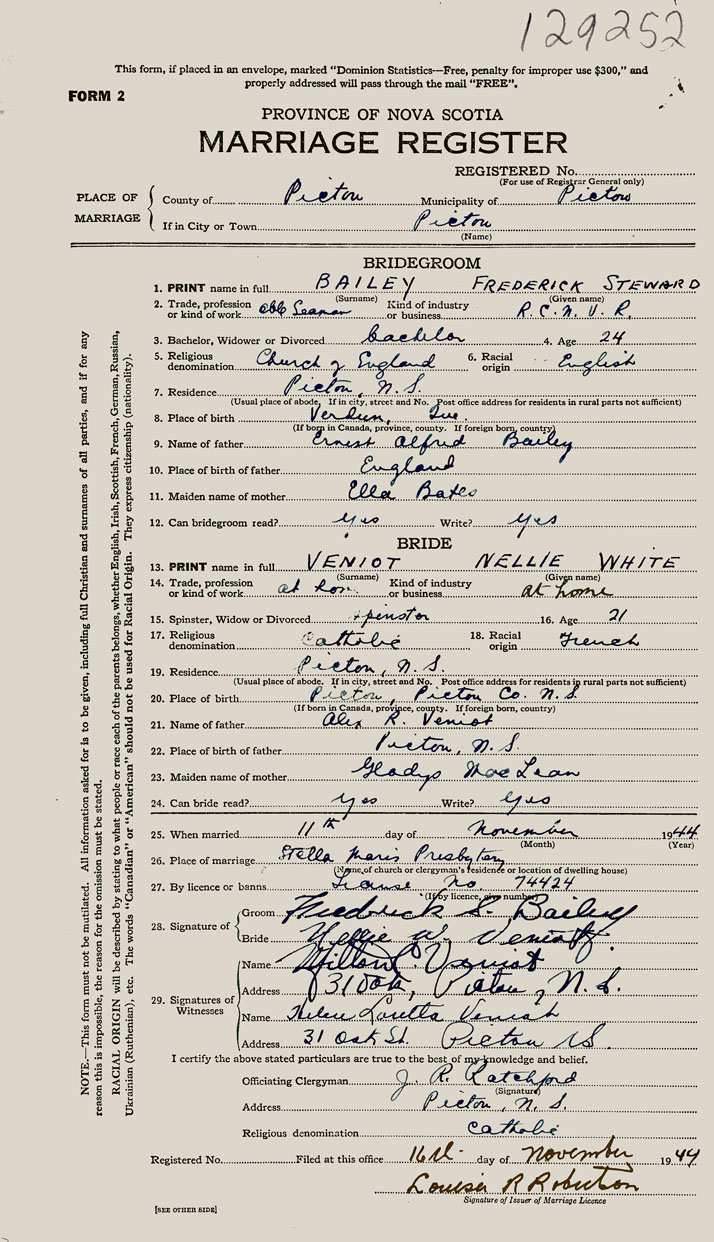 129252
This form, if placed in an envelope, marked "Dominion Statistics—Free, penalty for improper use $300," and
properly addressed will pass through the mail "FREE".
FORM 2
PROVINCE OF NOVA SCOTIA
MARRIAGE REGISTER
REGISTERED No.
(For use of Registrar General only)
PLACE OF MARRIAGE
County of Pictou Municipality of Pictou
If in City or Town Pictou
(Name)
BRIDEGROOM
1. PRINT name in full BAILEY FREDERICK STEWARD
(Surname) (Given name)
2. Trade, profession or kind of work able Seaman Kind of industry or business R.C.N.V.R.
3. Bachelor, Widower or Divorced bachelor 4. Age 24
5. Religious denomination Church of England 6. Racial origin English
7. Residence Pictou, N.S.
(Usual place of abode. If in city, street and No. Post office address for residents in rural parts not sufficient)
8. Place of birth Verdun, Que.
(If born in Canada, province, county. If foreign born, country)
9. Name of father Ernest Alfred Bailey
10. Place of birth of father England
11. Maiden name of mother Ella Bates
12. Can bridegroom read? yes Write? yes
BRIDE
13. PRINT name in full VENIOT NELLIE WHITE
(Surname) (Given name)
14. Trade, profession or kind of work at home Kind of industry or business at home
15. Spinster, Widow or Divorced spinster 16. Age 21
17. Religious denomination Catholic 18. Racial origin French
19. Residence Pictou, N.S.
(Usual place of abode. If in city, street and No. Post office address for residents in rural parts not sufficient)
20. Place of birth Pictou, Pictou Co. N.S.
(If born in Canada, province, county. If foreign born, country)
21. Name of father Alex R. Veniot
22. Place of birth of father Pictou, N.S.
23. Maiden name of mother Gladys MacLean
24. Can bride read? yes Write? yes
25. When married 11th day of November 1944
(Month) (Year)
26. Place of marriage Stella Maris Presbytery
(Name of church or clergyman's residence or location of dwelling house)
27. By licence or banns License No. 74424
(If by licence, give number)
28. Signature of
Groom Frederick S. Bailey
Bride Nellie W. Veniot
29. Signatures of Witnesses
Name Milton Veniot
Address 31 Oak, Pictou, N.S.
Name Helen Loretta Veniot
Address 31 Oak St. Pictou NS
I certify the above stated particulars are true to the best of my knowledge and belief.
Officiating Clergyman J. R. Ratchford
(Signature)
Address Pictou, N.S.
Religious denomination Catholic
Registered No. Filed at this office 16th day of November 1944
Louise R Robertson
Signature of Issuer of Marriage Licence
[SEE OTHER SIDE]
NOTE.—This form must not be mutilated. All information asked for is to be given, including full Christian and surnames of all parties, and if for any
reason this is impossible, the reason for the omission must be stated.
RACIAL ORIGIN will be described by stating to what people or race each of the parents belongs, whether English, Irish, Scottish, French, German, Russian,
Ukrainian (Ruthenian), etc. The words "Canadian" or "American" should not be used for Racial Origin. They express citizenship (nationality).